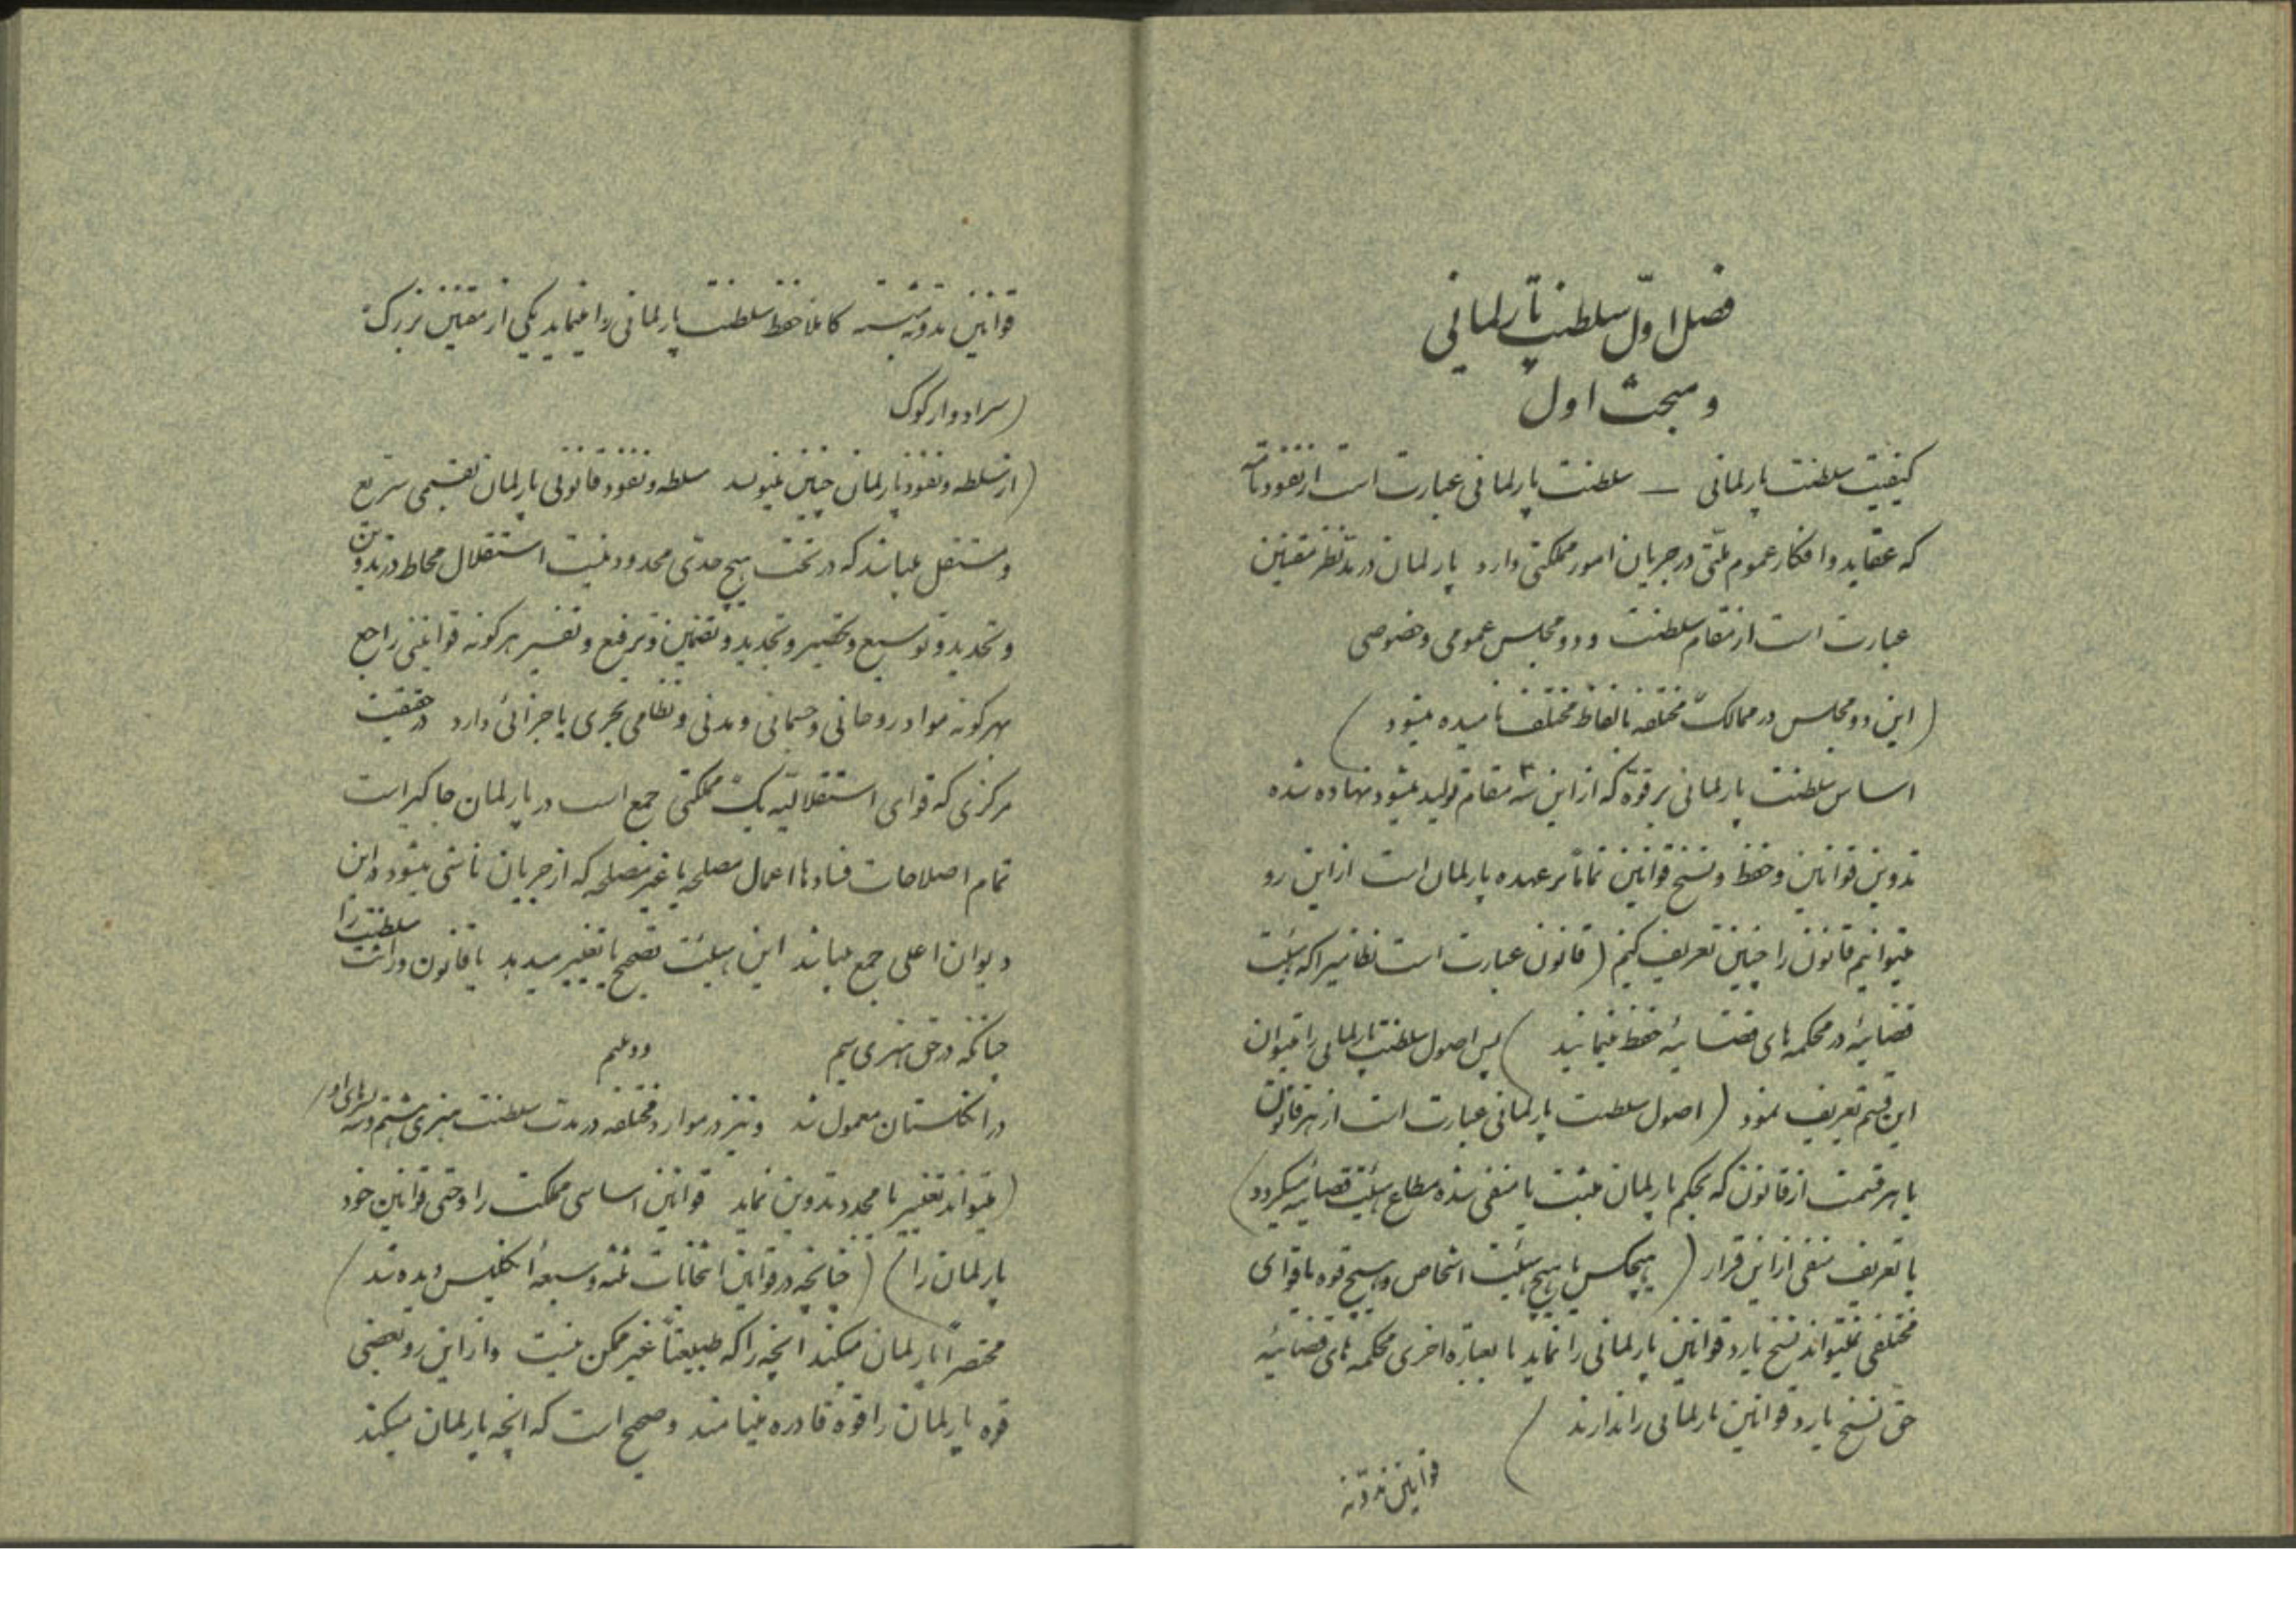 فصل اوّل سلطنت پارلمانی
و مبحث اول
کیفیت سلطنت پارلمانی — سلطنت پارلمانی عبارت است از نفوذ تامّه
که عقاید و افکار عموم ملّتی در جریان امور مملکتی دارد پارلمان در مدّ نظر مقننین
عبارت است از مقام سلطنت و دو مجلس عمومی و خصوصی
(این دو مجلس در ممالک مختلفه بالفاظ مختلف نامیده میشود)
اساس سلطنت پارلمانی بر قوّه که از این سه مقام تولید میشود نهاده شده
تدوین قوانین و حفظ و نسخ قوانین تماماً بر عهده پارلمان است از این رو
میتوانیم قانون را چنین تعریف کنیم (قانون عبارت است نظامیرا که هیئت
قضائیه در محکمه های قضائیه حفظ مینمایند) پس اصول سلطنت پارلمانی را میتوان
این قسم تعریف نمود (اصول سلطنت پارلمانی عبارت است از هر قانون
یا هر قسمت از قانون که بحکم پارلمان مثبت یا منفی شده مطاع هیئت قضائیه میگردد)
با تعریف منفی از این قرار (هیچکس یا هیچ هیئت اشخاص و هیچ قوه یا قوای
مختلفی نمیتواند نسخ یا رد قوانین پارلمانی را نماید یا بعبارة اخری محکمه های قضائیه
حق نسخ یا رد قوانین پارلمانی را ندارند)
قوانین مدوّنه
قوانین مدونه کاملا حفظ سلطنت پارلمانی را مینماید یکی از مقننین بزرک
(سر ادوارد کوک
(از سلطه و نفوذ پارلمان چنین مینویسد سلطه و نفوذ قانونی پارلمان بقسمی سریع
و مستقل میباشد که در تحت هیچ حدّی محدود نیست استقلال محاط در تدوین
و تحدید و توسیع و تجدید و تضمین و ترفیع و تفسیر هر گونه قوانینی راجع
بهر گونه مواد روحانی و جسمانی و مدنی و نظامی بحری یا جزائی دارد در حقیقت
مرکزی که قوای استقلالیّه یک مملکتی جمع است در پارلمان جاگیر است
تمام اصلاحات فسادها اعمال مصلحه یا غیر مصلحه که از جریان ناشی میشود در این
دیوان اعلی جمع میباشد این هیئت تصحیح یا تغییر میدهد یا قانون وراثت سلطنت را
چنانکه در حق هنری سیم دویم
در انگلستان معمول شد و نیز در موارد مختلفه در مدت سلطنت هنری هشتم و سه پسرهای او
(میتواند تغییر یا مجدد تدوین نماید قوانین اساسی مملکت را و حتی قوانین خود
پارلمان را) (چنانچه در قوانین انتخابات ثلثه و سبعهٔ انگلیس دیده شد)
مختصراً پارلمان میکند آنچه را که طبیعتاً غیر ممکن نیست و از این رو بعضی
قوه پارلمان را قوه قادره مینامند و صحیح است که آنچه پارلمان میکند